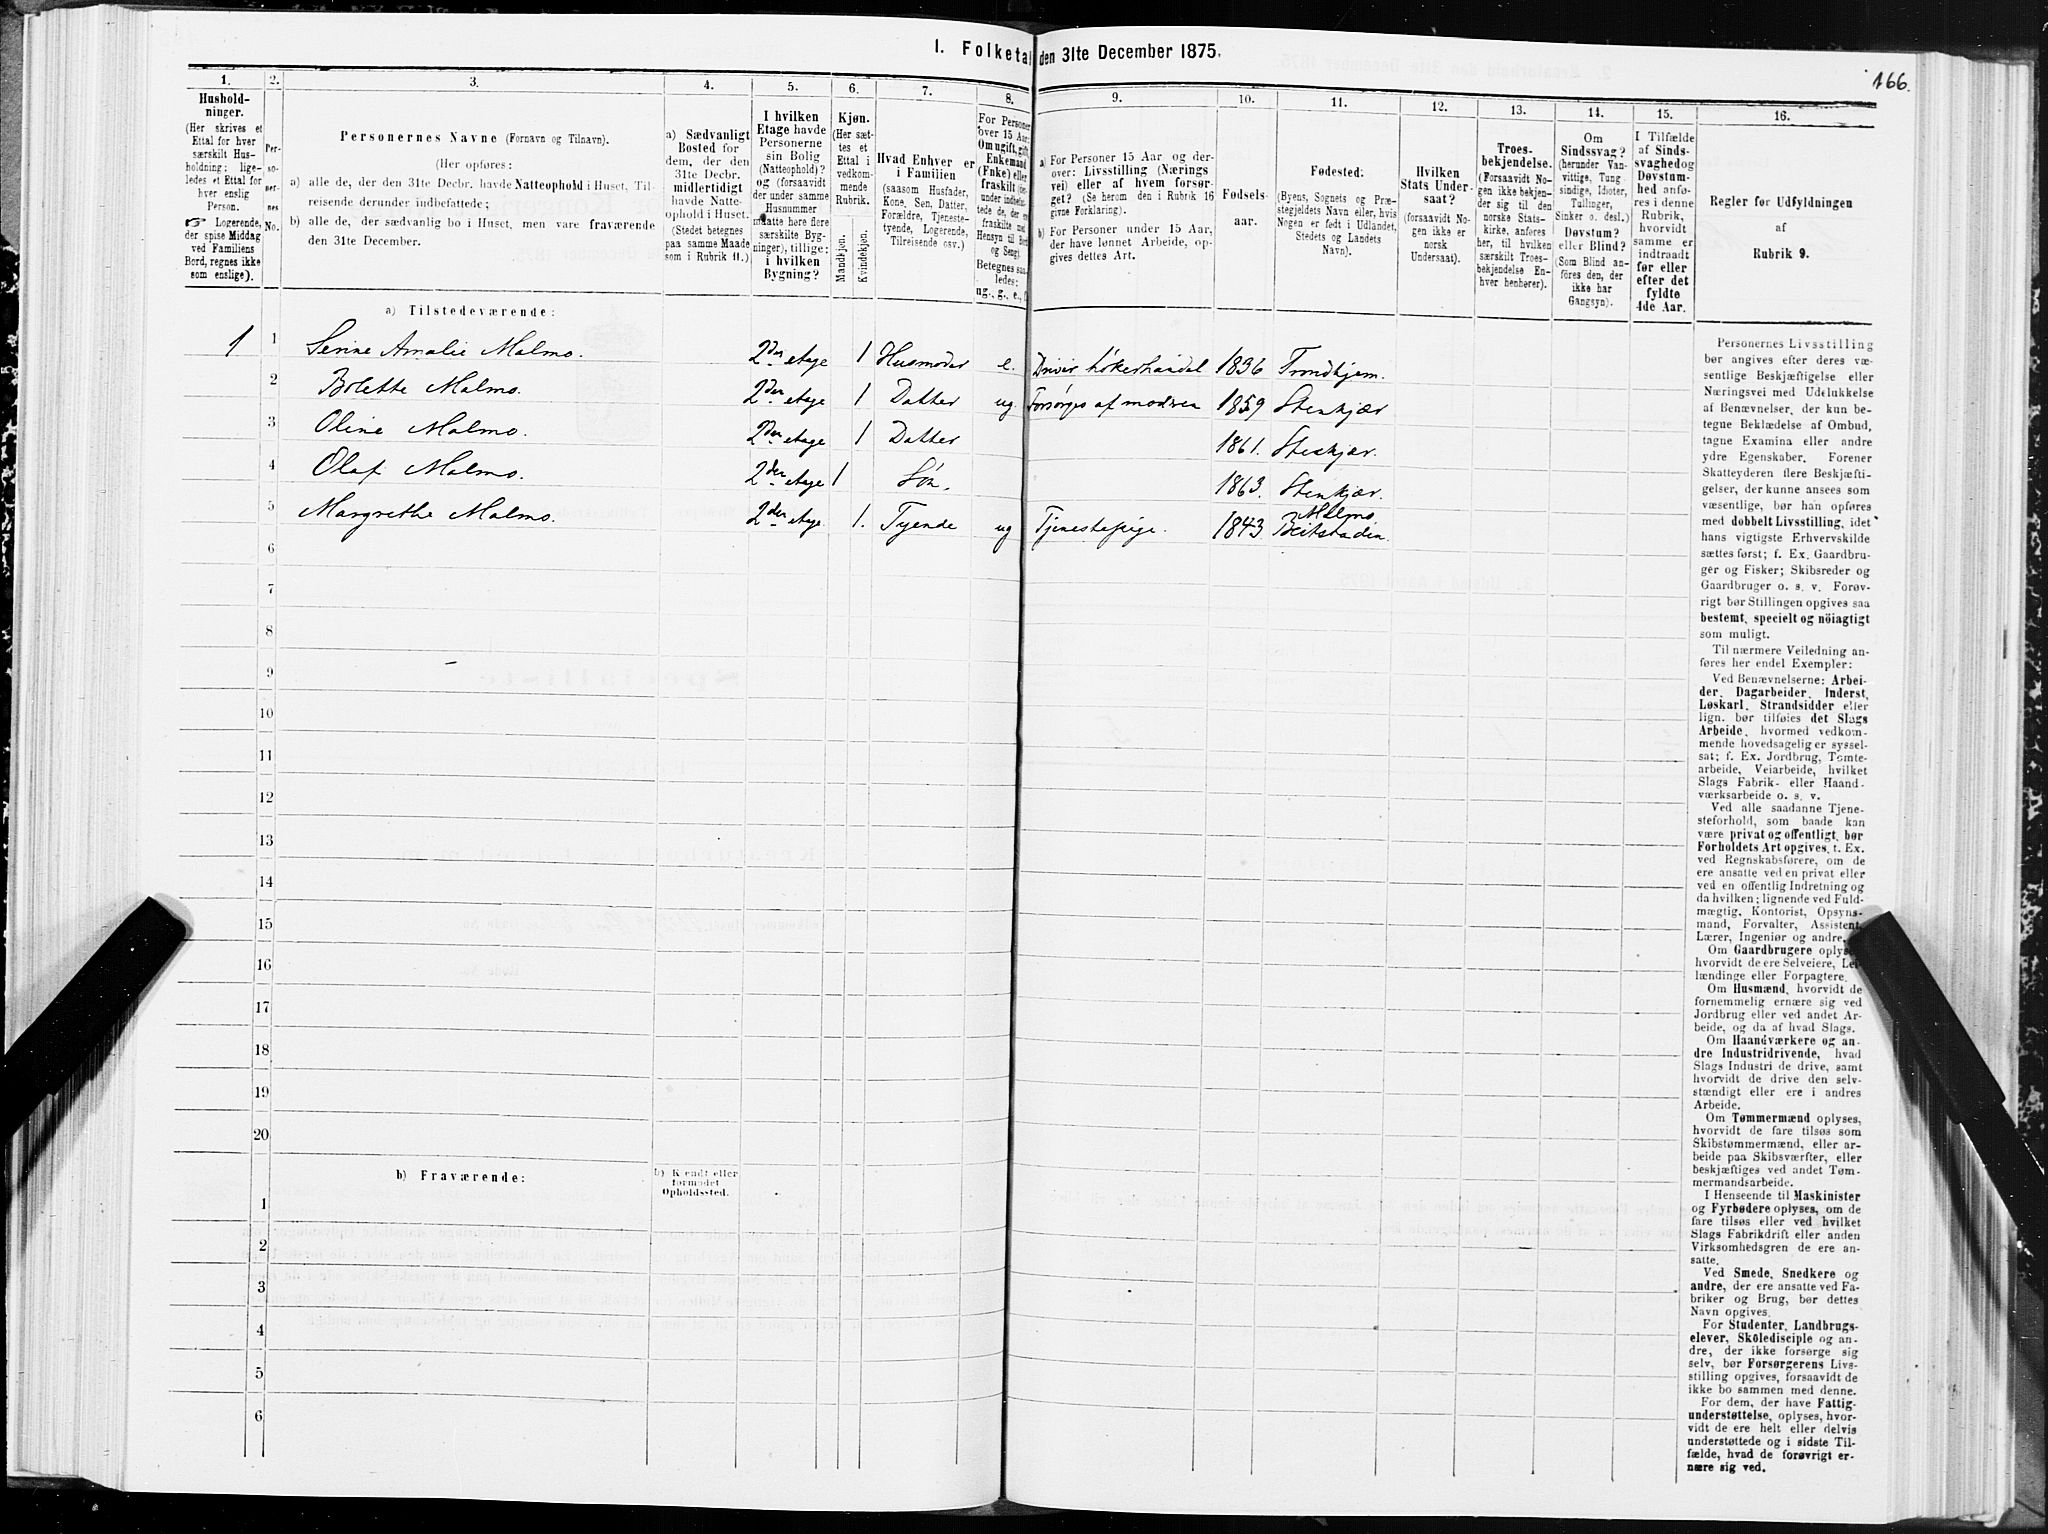 I. Folketal den 31te December 1875.
166.
1.
Hushold-
ninger.
(Her skrives et
Ettal for hver
særskilt Hus-
holdning; lige-
ledes et Ettal for
hver enslig
Person.
☞ Logerende,
der spise Middag
ved Familiens
Bord, regnes ikke
som enslige).
2.
Per-
so-
ner-
nes
No.
3.
Personernes Navne (Fornavn og Tilnavn).
(Her opføres:
a) alle de, der den 31te Decbr. havde Natteophold i Huset, Til-
reisende derunder indbefattede;
b) alle de, der sædvanlig bo i Huset, men vare fraværende
den 31te December.
4.
a) Sædvanligt
Bosted for
dem, der den
31te Decbr.
midlertidigt
havde Natte-
ophold i Huset.
(Stedet betegnes
paa samme Maade
som i Rubrik 11.)
5.
I hvilken
Etage havde
Personerne
sin Bolig
(Natteophold)?
og (forsaavidt
der under samme
Husnummer
maatte here flere
særskilte Byg-
ninger), tillige:
i hvilken
Bygning?
6.
Kjøn.
(Her sæt-
tes et
Ettal i
vedkom-
mende
Rubrik.
Mandkjøn.
Kvindekjøn.
7.
Hvad Enhver er
i Familien
(saasom Husfader,
Kone, Søn, Datter,
Forældre, Tjeneste-
tyende, Logerende,
Tilreisende osv.)
8.
For Personer
over 15 Aar:
Om ugift, gift,
Enkemand
(Enke) eller
fraskilt (der-
under indbefat-
tede de, der ere
fraskilte med
Hensyn til Bord
og Seng).
Betegnes saa-
ledes:
ug., g., e., f.
9.
a) For Personer 15 Aar og der-
over: Livsstilling (Nærings
vei) eller af hvem forsør-
get? (Se herom den i Rubrik 16
givne Forklaring).
b) For Personer under 15 Aar,
der have lønnet Arbeide, op-
gives dettes Art.
10.
Fødsels-
aar.
11.
Fødested:
(Byens, Sognets og Præ-
stegjeldets Navn eller, hvis
Nogen er født i Udlandet,
Stedets og Landets
Navn).
12.
Hvilken
Stats Under-
saat?
(forsaavidt No-
gen ikke er
norsk
Undersaat).
13.
Troes-
bekjendelse.
(Forsaavidt No-
gen ikke bekjen-
der sig til den
norske Stats-
kirke, anføres
her, til hvilken
særskilt Troes-
bekjendelse En-
hver henhører).
14.
Om
Sindssvag?
(herunder Van-
vittige, Tung
sindige, Idioter,
Tullinger,
Sinker o. desl.)
Døvstum?
eller Blind?
(Som Blind an-
føres den, der
ikke har
Gangsyn).
15.
I Tilfælde
af Sinds-
svaghed og
Døvstum-
hed anfø-
res i denne
Rubrik,
hvorvidt
samme er
indtraadt
før eller
efter det
fyldte
4de Aar.
16.
Regler for Udfyldningen
af
Rubrik 9.
a) Tilstedeværende:
1 1 Serine Amalie Malmo. 2den etage 1 Husmoder e. Driver høkerhandel 1836 Trondhjem.
2 Bolette Malmo. 2den etage 1 Datter ug. Forsørges af modren 1859 Stenkjær
3 Oline Malmo. 2den etage 1 Datter 1861. Stenkjær.
4 Olaf Malmo. 2den etage 1 Søn. 1863. Stenkjær.
5 Margrethe Malmo. 2den etage. 1. Tyende ug Tjenestepige. 1843 Malmo Beitstaden.
6
7
8
9
10
11
12
13
14
15
16
17
18
19
20
b) Fraværende:
b) Kjendt eller
formodet
Opholdssted.
1
2
3
4
5
6
Personernes Livsstilling
bør angives efter deres væ-
sentlige Beskjæftigelse eller
Næringsvei med Udelukkelse
af Benævnelser, der kun be-
tegne Beklædelse af Ombud,
tagne Examina eller andre
ydre Egenskaber. Forener
Skatteyderen flere Beskjæfti-
gelser, der kunne ansees som
væsentlige, bør han opføres
med dobbelt Livsstilling, idet
hans vigtigste Erhvervskilde
sættes først; f. Ex. Gaardbru-
ger og Fisker; Skibsreder og
Gaardbruger o. s. v. Forøv-
rigt bør Stillingen opgives saa
bestemt, specielt og nöiagtigt
som muligt.
Til nærmere Veiledning an-
føres her endel Exempler:
Ved Benævnelserne: Arbei-
der, Dagarbeider, Inderst,
Løskarl, Strandsidder eller
lign. bør tilføies det Slags
Arbeide, hvormed vedkom-
mende hovedsagelig er syssel-
sat; f. Ex. Jordbrug, Tomte-
arbeide, Veiarbeide, hvilket
Slags Fabrik- eller Haand-
værksarbeide o. s. v.
Ved alle saadanne Tjene-
steforhold, som baade kan
være privat og offentligt, bør
Forholdets Art opgives, f. Ex.
ved Regnskabsførere, om de
ere ansatte ved en privat eller
ved en offentlig Indretning og
da hvilken; lignende ved Fuld-
mægtig, Kontorist, Opsyns-
mand, Forvalter, Assistent,
Lærer, Ingeniør og andre.
Om Gaardbrugere oplyses,
hvorvidt de ere Selveiere, Lei-
lændinge eller Forpagtere.
Om Husmænd, hvorvidt de
fornemmelig ernære sig ved
Jordbrug eller ved andet Ar-
beide, og da af hvad Slags.
Om Haandværkere og an-
dre Industridrivende, hvad
Slags Industri de drive, samt
hvorvidt de drive den selv-
stændigt eller ere i andres
Arbeide.
Om Tømmermænd oplyses,
hvorvidt de fare tilsøs som
Skibstømmermænd, eller ar-
beide paa Skibsværfter, eller
beskjæftiges ved andet Tøm-
mermandsarbeide.
I Henseende til Maskinister
og Fyrbødere oplyses, om de
fare tilsøs eller ved hvilket
Slags Fabrikdrift eller anden
Virksomhedsgren de ere an-
satte.
Ved Smede, Snedkere og
andre, der ere ansatte ved Fa-
briker og Brug, bør dettes
Navn opgives.
For Studenter, Landbrugs-
elever, Skoledisciple og an-
dre, der ikke forsørge sig
selv, bør Forsørgerens Livs-
stilling opgives, forsaavidt de
ikke bo sammen med denne.
For dem, der have Fattig-
understøttelse, oplyses, hvor-
vidt de ere helt eller delvis
understøttede og i sidste Til-
fælde, hvad de forøvrigt er-
nære sig ved.